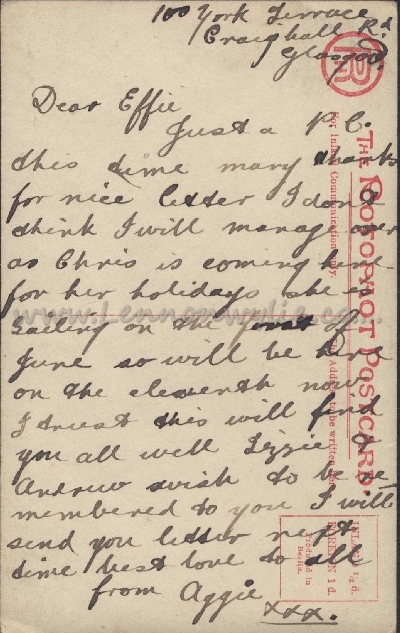 100 York Terrace
Craighall Rd
Glasgow
Dear Effie
Just a P.C.
this time many thanks
for nice letter I dont
think I will manage over
as Chris is coming here
for her holidays she is
sailing on the first of
June so will be here
on the eleventh now
I trust this will find
you all well Lizzie &
Andrew wish to be re
membered to you I will
send you letter next
time best love to all
from Aggie
xxx.
THE ROTOPHOT POSTCARD
For Inland Communication only.
The Address to be written
INLAND ½ d.
FOREIGN 1 d.
Produced in
Berlin.
www.Lennonwylie.co.